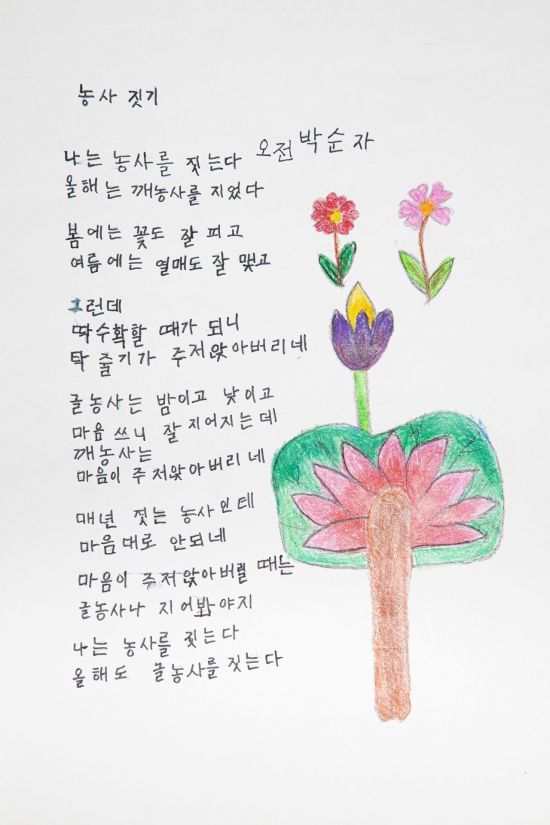 농사 짓기
오전 박순자
나는 농사를 짓는다
올해는 깨농사를 지었다
봄에는 꽃도 잘 피고
여름에는 열매도 잘 맺고
그런데
딱수확할 때가 되니
탁 줄기가 주저앉아버리네
글농사는 밤이고 낮이고
마음 쓰니 잘 지어지는데
깨농사는
마음이 주저앉아버리네
매년 짓는 농사인테
마음대로 안되네
마음이 주저앉아버릴 때는
글농사나 지어봐야지
나는 농사를 짓는다
올해도 글농사를 짓는다